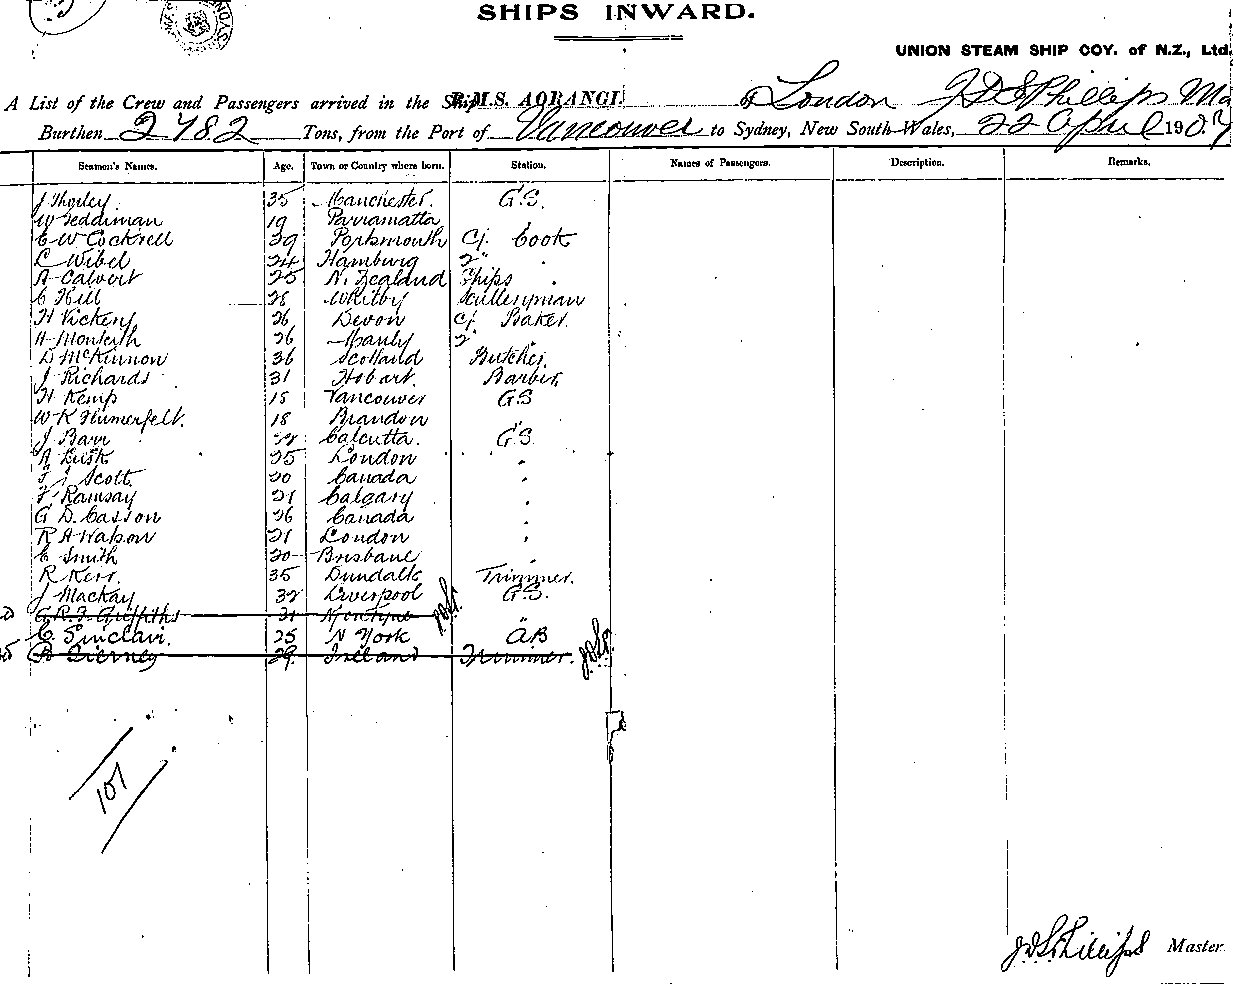 SHIPS INWARD.
UNION STEAM SHIP COY. of N.Z., Ltd.
A List of the Crew and Passengers arrived in the Ship R.M.S. AORANGI. of London J D S Phillips Ma
Burthen 2782 Tons, from the Port of Vancouver to Sydney, New South Wales, 22 April 1907
Seamen's Names. Age. Town or Country where born. Station. Names of Passengers. Description. Remarks.
J Thorley. 35 Manchester. G.S.
W Geddiman 19 Parramatta "
E W Cockrell 29 Portsmouth Cf. Cook
C Wibel 24 Hamburg 2nd "
A Calvert 25 N. Zealand Ships "
C Hill 28 Whitby Sculleryman
H Vickery 26 Devon Cf. Baker.
A Monteith 26 Manly 2nd "
D McKinnon 36 Scotland Butcher.
J Richards 31 Hobart. Barber.
H Kemp 18 Vancouver G.S
W K Humerfelt. 18 Brandon "
J Barr Calcutta. G.S.
A Lusk 25 London "
F J Scott. 20 Canada "
F. Ramsay 21 Calgary "
G D. Casson 26 Canada "
R A Watson 21 London "
E Smith 20 Brisbane "
R Kerr. 35 Dundalk Trimmer.
J Mackay 32 Liverpool G.S.
G. R. F. Griffiths 21 "
C. Sinclair. 25 N York AB
B Tierney 29 Ireland Trimmer.
107
J D S Phillips Master.